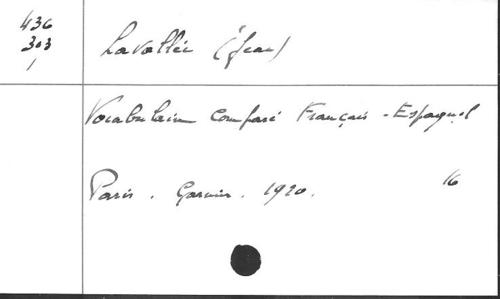 436
303
1
Lavallée (Jean)
Vocabulaire Comparé Français - Espagnol
Paris. Garnier. 1920. 16